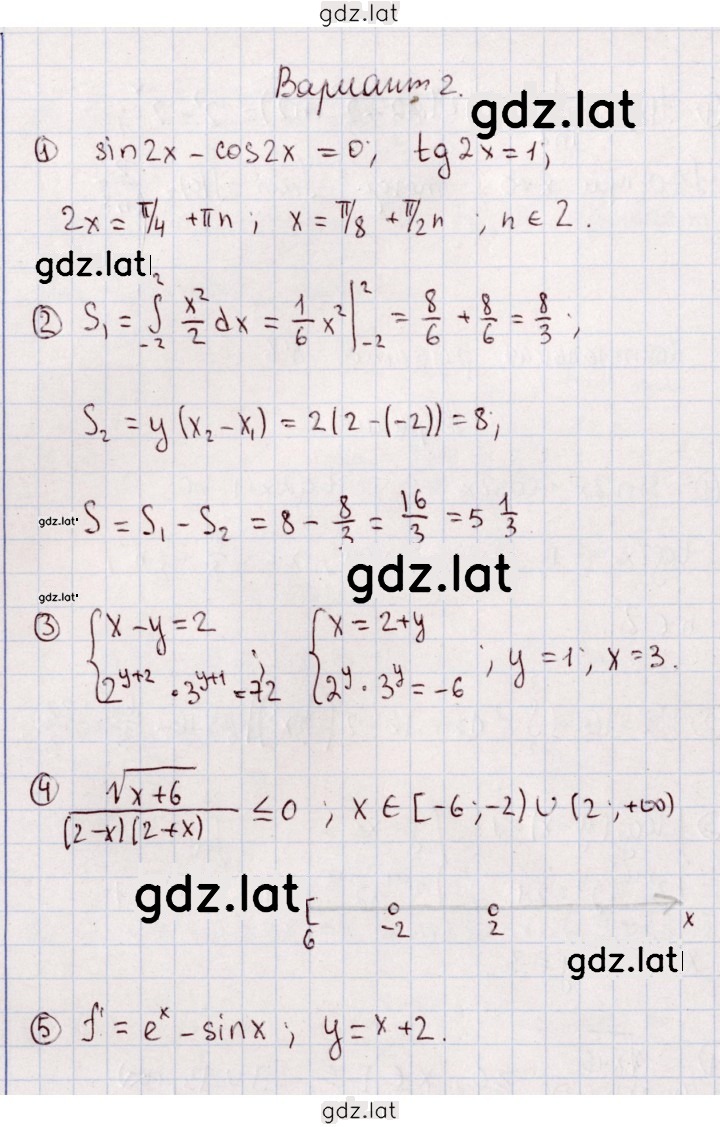 gdz.lat
Вариант 2.
gdz.lat
① sin2x - cos2x = 0; tg2x = 1;
2x = π/4 + πn; x = π/8 + π/2 n; n ∈ 2.
gdz.lat
② S₁ = ∫₋₂² x²/2 dx = 1/6 x² |₋₂² = 8/6 + 8/6 = 8/3;
S₂ = y(x₂ - x₁) = 2(2 - (-2)) = 8;
gdz.lat S = S₁ - S₂ = 8 - 8/3 = 16/3 = 5 1/3
gdz.lat
gdz.lat
③ { x - y = 2 { x = 2 + y
2^(y+2) · 3^(y+1) = 72 ; 2^y · 3^y = -6 ; y = 1; x = 3.
④ √(x+6) / (2-x)(2+x) ≤ 0 ; x ∈ [-6; -2) ∪ (2; +∞)
gdz.lat
[ 6 -2 2 x
gdz.lat
⑤ f' = e^x - sinx; y = x + 2.
gdz.lat